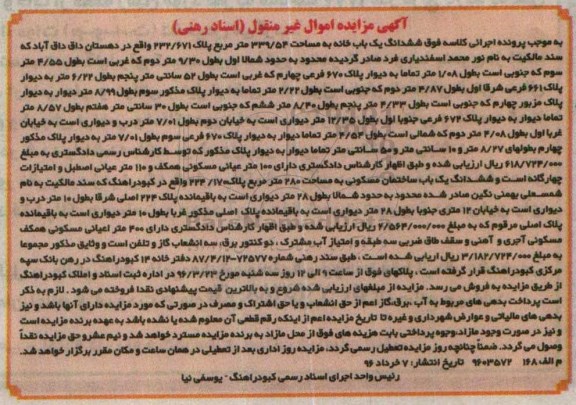 آگهی مزایده اموال غیر منقول (اسناد رهنی)
به موجب پرونده اجرائی کلاسه فوق ششدانگ یک باب خانه به مساحت ۳۳۹/۵۴ متر مربع پلاک ۲۳۲/۶۷۱ واقع در دهستان داق داق آباد که
سند مالکیت به نام نور محمد اسفندیاری فرد صادر گردیده محدود به حدود شمالا اول بطول ۹/۳۰ متر دوم که غربی است بطول ۴/۵۵ متر
سوم که جنوبی است بطول ۱/۰۸ متر تماما به دیوار پلاک ۶۷۰ فرعی چهارم که غربی است بطول ۵۲ سانتی متر پنجم بطول ۶/۲۲ متر به دیوار
پلاک ۶۶۱ فرعی شرقا اول بطول ۴/۸۷ متر دوم که جنوبی است بطول ۲/۲۲ متر تماما به دیوار پلاک مذکور سوم بطول ۸/۹۹ متر دیوار به دیوار
پلاک مزبور چهارم که جنوبی است بطول ۴/۳۳ متر پنجم بطول ۸/۴۰ متر ششم که جنوبی است بطول ۳۰ سانتی متر هفتم بطول ۸/۵۷ متر
تماما دیوار به دیوار پلاک ۶۷۲ فرعی جنوبا اول بطول ۱۲/۳۵ متر دیواری است به خیابان دوم بطول ۷/۰۱ متر درب و دیواری است به خیابان
غربا اول بطول ۴/۰۸ متر دوم که شمالی است بطول ۴/۵۴ متر تماما دیوار به دیوار پلاک ۶۷۰ فرعی سوم بطول ۷/۰۱ متر به دیوار پلاک مذکور
چهارم بطولهای ۸/۲۷ متر و ۱۰ سانتی متر و ۵۰ سانتی متر تماما دیوار به دیوار پلاک مذکور که توسط کارشناس رسمی دادگستری به مبلغ
۶۱۸/۷۲۴/۰۰۰ ریال ارزیابی شده و طبق اظهار کارشناس دادگستری دارای ۱۰۰ متر اعیانی مسکونی همکف و ۱۱۰ متر عیانی اصطبل و امتیازات
چهارگانه است و ششدانگ یک باب ساختمان مسکونی به مساحت ۲۸۰ متر مربع پلاک ۲۲۴/۱۷ واقع در کبودراهنگ که سند مالکیت به نام
شمسعلی بهمنی نگین صادر شده محدود به حدود شمالا بطول ۲۸ متر دیواری است به باقیمانده پلاک ۲۲۴ اصلی شرقا بطول ۱۰ متر درب و
دیواری است به خیابان ۱۲ متری جنوبا بطول ۲۸ متر دیواری است به باقیمانده پلاک اصلی مذکور غربا بطول ۱۰ متر دیواری است به باقیمانده
پلاک اصلی مرقوم که به مبلغ ۲/۵۶۴/۰۰۰/۰۰۰ ریال ارزیابی شده و طبق اظهار کارشناس دادگستری دارای ۴۰۰ متر اعیانی مسکونی همکف
مسکونی آجری و آهنی و سقف طاق ضربی سه طبقه و امتیاز آب مشترک ، دو کنتور برق، سه انشعاب گاز و تلفن است و وثایق مذکور مجموعا
به مبلغ ۳/۱۸۲/۷۲۴/۰۰۰ ریال ارزیابی شده است ، طبق سند رهنی شماره ۷۲۵۷۷-۸۷/۴/۱۲ دفترخانه ۱۴ کبودراهنگ در رهن بانک سپه
مرکزی کبودراهنگ قرار گرفته است ، پلاکهای فوق از ساعت ۹ الی ۱۲ روز سه شنبه مورخ ۹۶/۳/۲۳ در اداره ثبت اسناد و املاک کبودراهنگ
از طریق مزایده به فروش می رسد. مزایده از مبلغهای ارزیابی شده شروع و به بالاترین قیمت پیشنهادی نقدا فروخته می شود . لازم به ذکر
است پرداخت بدهی های مربوط به آب ،برق،گاز اعم از حق انشعاب و یا حق اشتراک و مصرف در صورتی که مورد مزایده دارای آنها باشد و نیز
بدهی های مالیاتی و عوارض شهرداری و غیره تا تاریخ مزایده اعم از اینکه رقم قطعی آن معلوم شده یا نشده باشد به عهده برنده مزایده است
و نیز در صورت وجود مازاد،وجوه پرداختی بابت هزینه های فوق از محل مازاد به برنده مزایده مسترد خواهد شد و نیم عشر و حق مزایده نقداً
وصول می گردد. ضمناً چنانچه روز مزایده تعطیل رسمی گردد، مزایده روز اداری بعد از تعطیلی در همان ساعت و مکان مقرر برگزار خواهد شد.
م الف ۱۶۸ ۹۶۰۳۵۷۲ تاریخ انتشار: ۷ خرداد ۹۶
رئیس واحد اجرای اسناد رسمی کبودراهنگ - یوسفی نیا